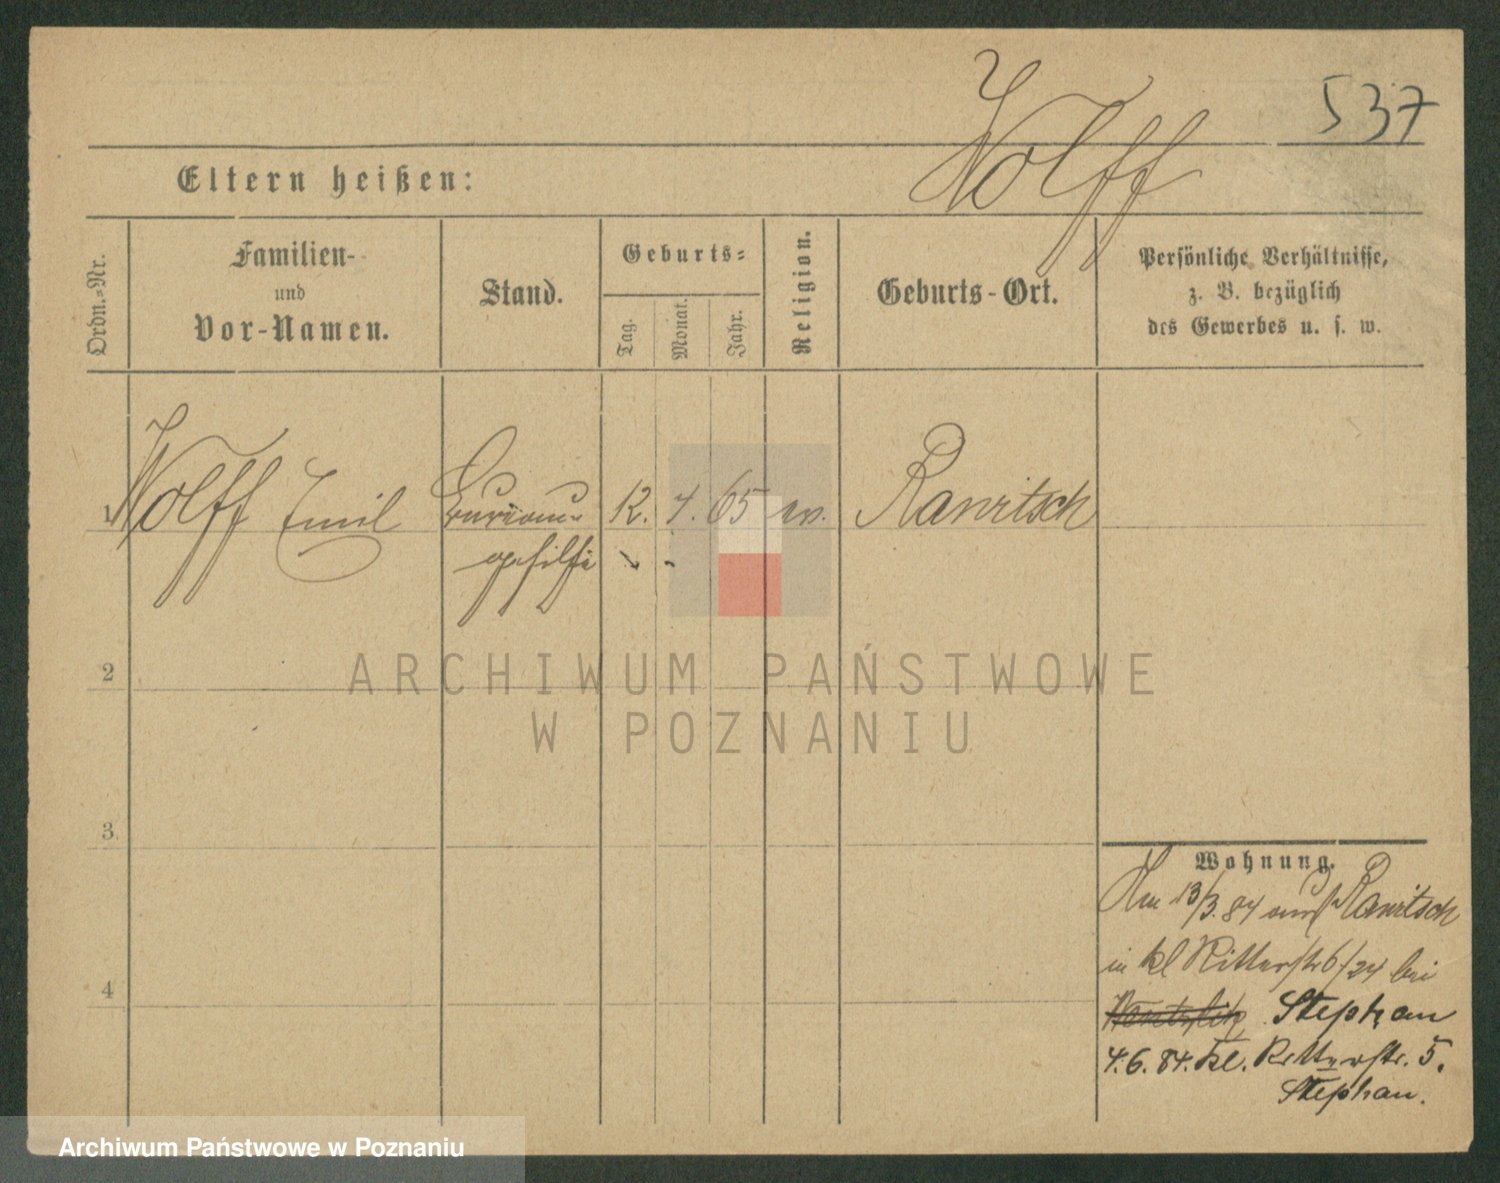 537
Wolff
Eltern heißen:
Ordn.-Nr.
Familien-
und
Vor-Namen.
Stand.
Geburts-
Tag.
Monat.
Jahr.
Religion.
Geburts-Ort.
Persönliche Verhältnisse,
z. B. bezüglich
des Gewerbes u. s. w.
1 Wolff Emil Bureau- 12. 4. 65 ev. Rawitsch
gehilfe
2
3
4
Wohnung.
13/3. 84 aus Rawitsch
in kl Ritterstr 6/24 bei
Stephan
4. 6. 84. kl. Ritterstr. 5.
Stephan.
ARCHIWUM PAŃSTWOWE
W POZNANIU
Archiwum Państwowe w Poznaniu